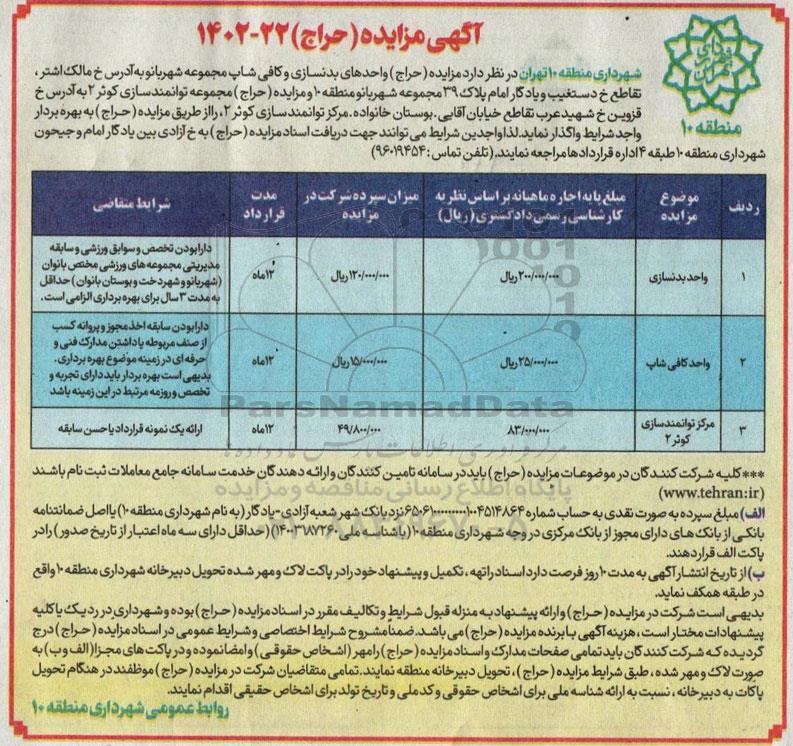 آگهی مزایده (حراج) ۲۲-۱۴۰۲
منطقه ۱۰
شهرداری منطقه ۱۰ تهران در نظر دارد مزایده (حراج) واحدهای بدنسازی و کافی شاپ مجموعه شهربانو به آدرس خ مالک اشتر،
تقاطع خ دستغیب و یادگار امام پلاک ۳۹ مجموعه شهربانو منطقه ۱۰ و مزایده (حراج) مجموعه توانمندسازی کوثر ۲ به آدرس خ
قزوین خ شهید عرب تقاطع خیابان آقایی. بوستان خانواده. مرکز توانمندسازی کوثر ۲، را از طریق مزایده (حراج) به بهره بردار
واجد شرایط واگذار نماید. لذا واجدین شرایط می توانند جهت دریافت اسناد مزایده (حراج) به خ آزادی بین یادگار امام و جیحون
شهرداری منطقه ۱۰ طبقه ۴ اداره قراردادها مراجعه نمایند. (تلفن تماس: ۹۶۰۱۹۴۵۴)
ردیف | موضوع مزایده | مبلغ پایه اجاره ماهیانه بر اساس نظریه کارشناسی رسمی دادگستری (ریال) | میزان سپرده شرکت در مزایده | مدت قرارداد | شرایط متقاضی
۱ | واحد بدنسازی | ۲۰۰/۰۰۰/۰۰۰ ریال | ۱۲۰/۰۰۰/۰۰۰ ریال | ۱۲ ماه | دارا بودن تخصص و سوابق ورزشی و سابقه
مدیریتی مجموعه های ورزشی مختص بانوان
(شهربانو و شهردخت و بوستان بانوان) حداقل
به مدت ۳ سال برای بهره برداری الزامی است.
۲ | واحد کافی شاپ | ۲۵/۰۰۰/۰۰۰ ریال | ۱۵/۰۰۰/۰۰۰ ریال | ۱۲ ماه | دارا بودن سابقه اخذ مجوز و پروانه کسب
از صنف مربوطه یا داشتن مدارک فنی و
حرفه ای در زمینه موضوع بهره برداری.
بدیهی است بهره بردار باید دارای تجربه و
تخصص و روزمه مرتبط در این زمینه باشد
۳ | مرکز توانمندسازی کوثر ۲ | ۸۳/۰۰۰/۰۰۰ | ۴۹/۸۰۰/۰۰۰ | ۱۲ ماه | ارائه یک نمونه قرارداد با حسن سابقه
ParsNamadData
پایگاه اطلاع رسانی مناقصه و مزایده
***کلیه شرکت کنندگان در موضوعات مزایده (حراج) باید در سامانه تامین کنندگان و ارائه دهندگان خدمت سامانه جامع معاملات ثبت نام باشند
(www.tehran.ir)
الف) مبلغ سپرده به صورت نقدی به حساب شماره نزد بانک شهر شعبه آزادی-یادگار (به نام شهرداری منطقه ۱۰) یا اصل ضمانتنامه
بانکی از بانک های دارای مجوز از بانک مرکزی در وجه شهرداری منطقه ۱۰ (با شناسه ملی ۱۴۰۰۳۶۸۷۲۶۰) (حداقل دارای سه ماه اعتبار از تاریخ صدور) را در
پاکت الف قرار دهند.
ب) از تاریخ انتشار آگهی به مدت ۱۰ روز فرصت دارد اسناد را تهیه، تکمیل و پیشنهاد خود را در پاکت لاک و مهر شده تحویل دبیرخانه شهرداری منطقه ۱۰ واقع
در طبقه همکف نماید.
بدیهی است شرکت در مزایده (حراج) و ارائه پیشنهاد به منزله قبول شرایط و تکالیف مقرر در اسناد مزایده (حراج) بوده و شهرداری در رد یک یا کلیه
پیشنهادات مختار است، هزینه آگهی با برنده مزایده (حراج) می باشد. ضمنا مشروح شرایط اختصاصی و شرایط عمومی در اسناد مزایده (حراج) درج
گردیده که شرکت کنندگان باید تمامی صفحات مدارک و اسناد مزایده (حراج) را مهر (اشخاص حقوقی) و امضا نموده و در پاکت های مجزا (الف و ب) به
صورت لاک و مهر شده، طبق شرایط مزایده (حراج)، تحویل دبیرخانه منطقه نمایند. تمامی متقاضیان شرکت در مزایده (حراج) موظفند در هنگام تحویل
پاکات به دبیرخانه، نسبت به ارائه شناسه ملی برای اشخاص حقوقی و کد ملی و تاریخ تولد برای اشخاص حقیقی اقدام نمایند.
روابط عمومی شهرداری منطقه ۱۰